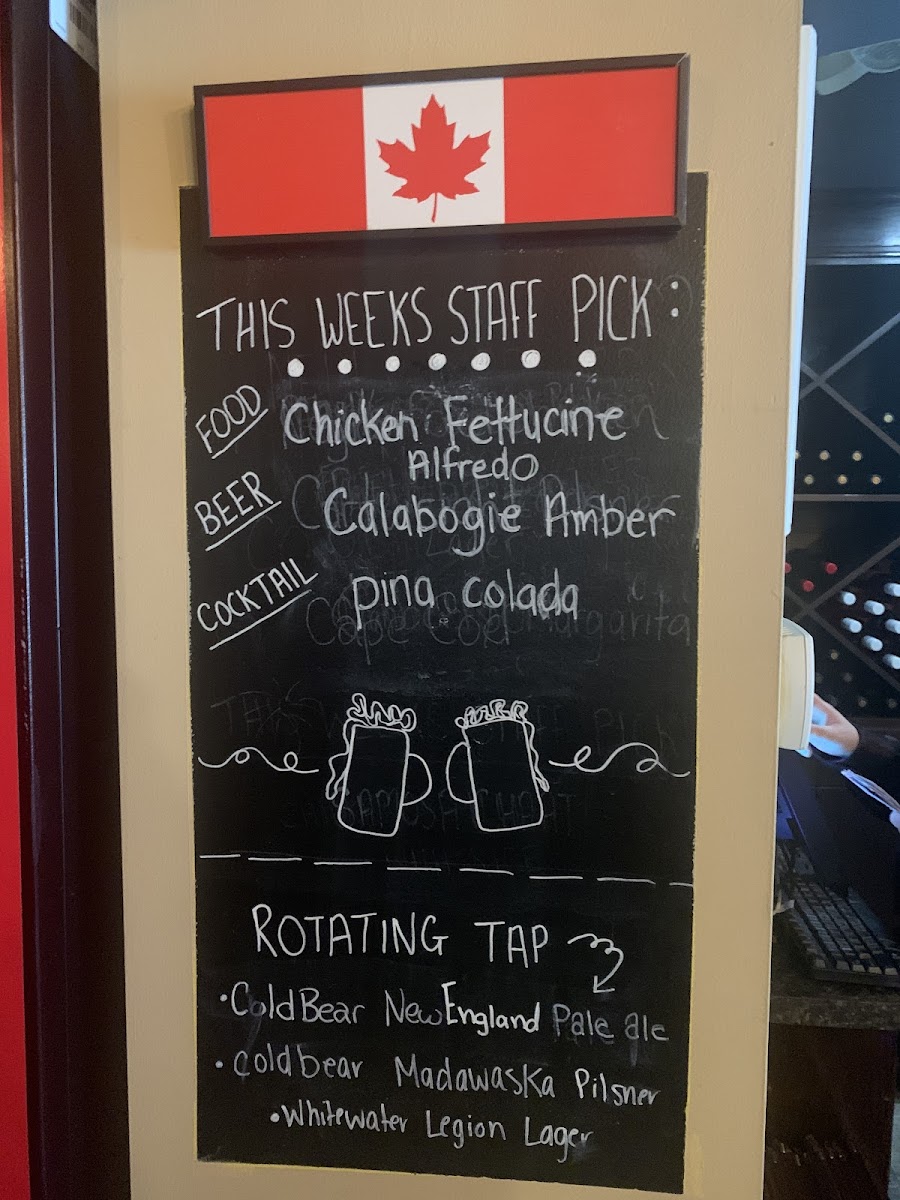 THIS WEEKS STAFF PICK:
FOOD
Chicken Fettucine
Alfredo
BEER
Calabogie Amber
COCKTAIL
pina colada
Cape Cod Margarita
ROTATING TAP
• ColdBear NewEngland Pale ale
• coldbear Madawaska Pilsner
• Whitewater Legion Lager